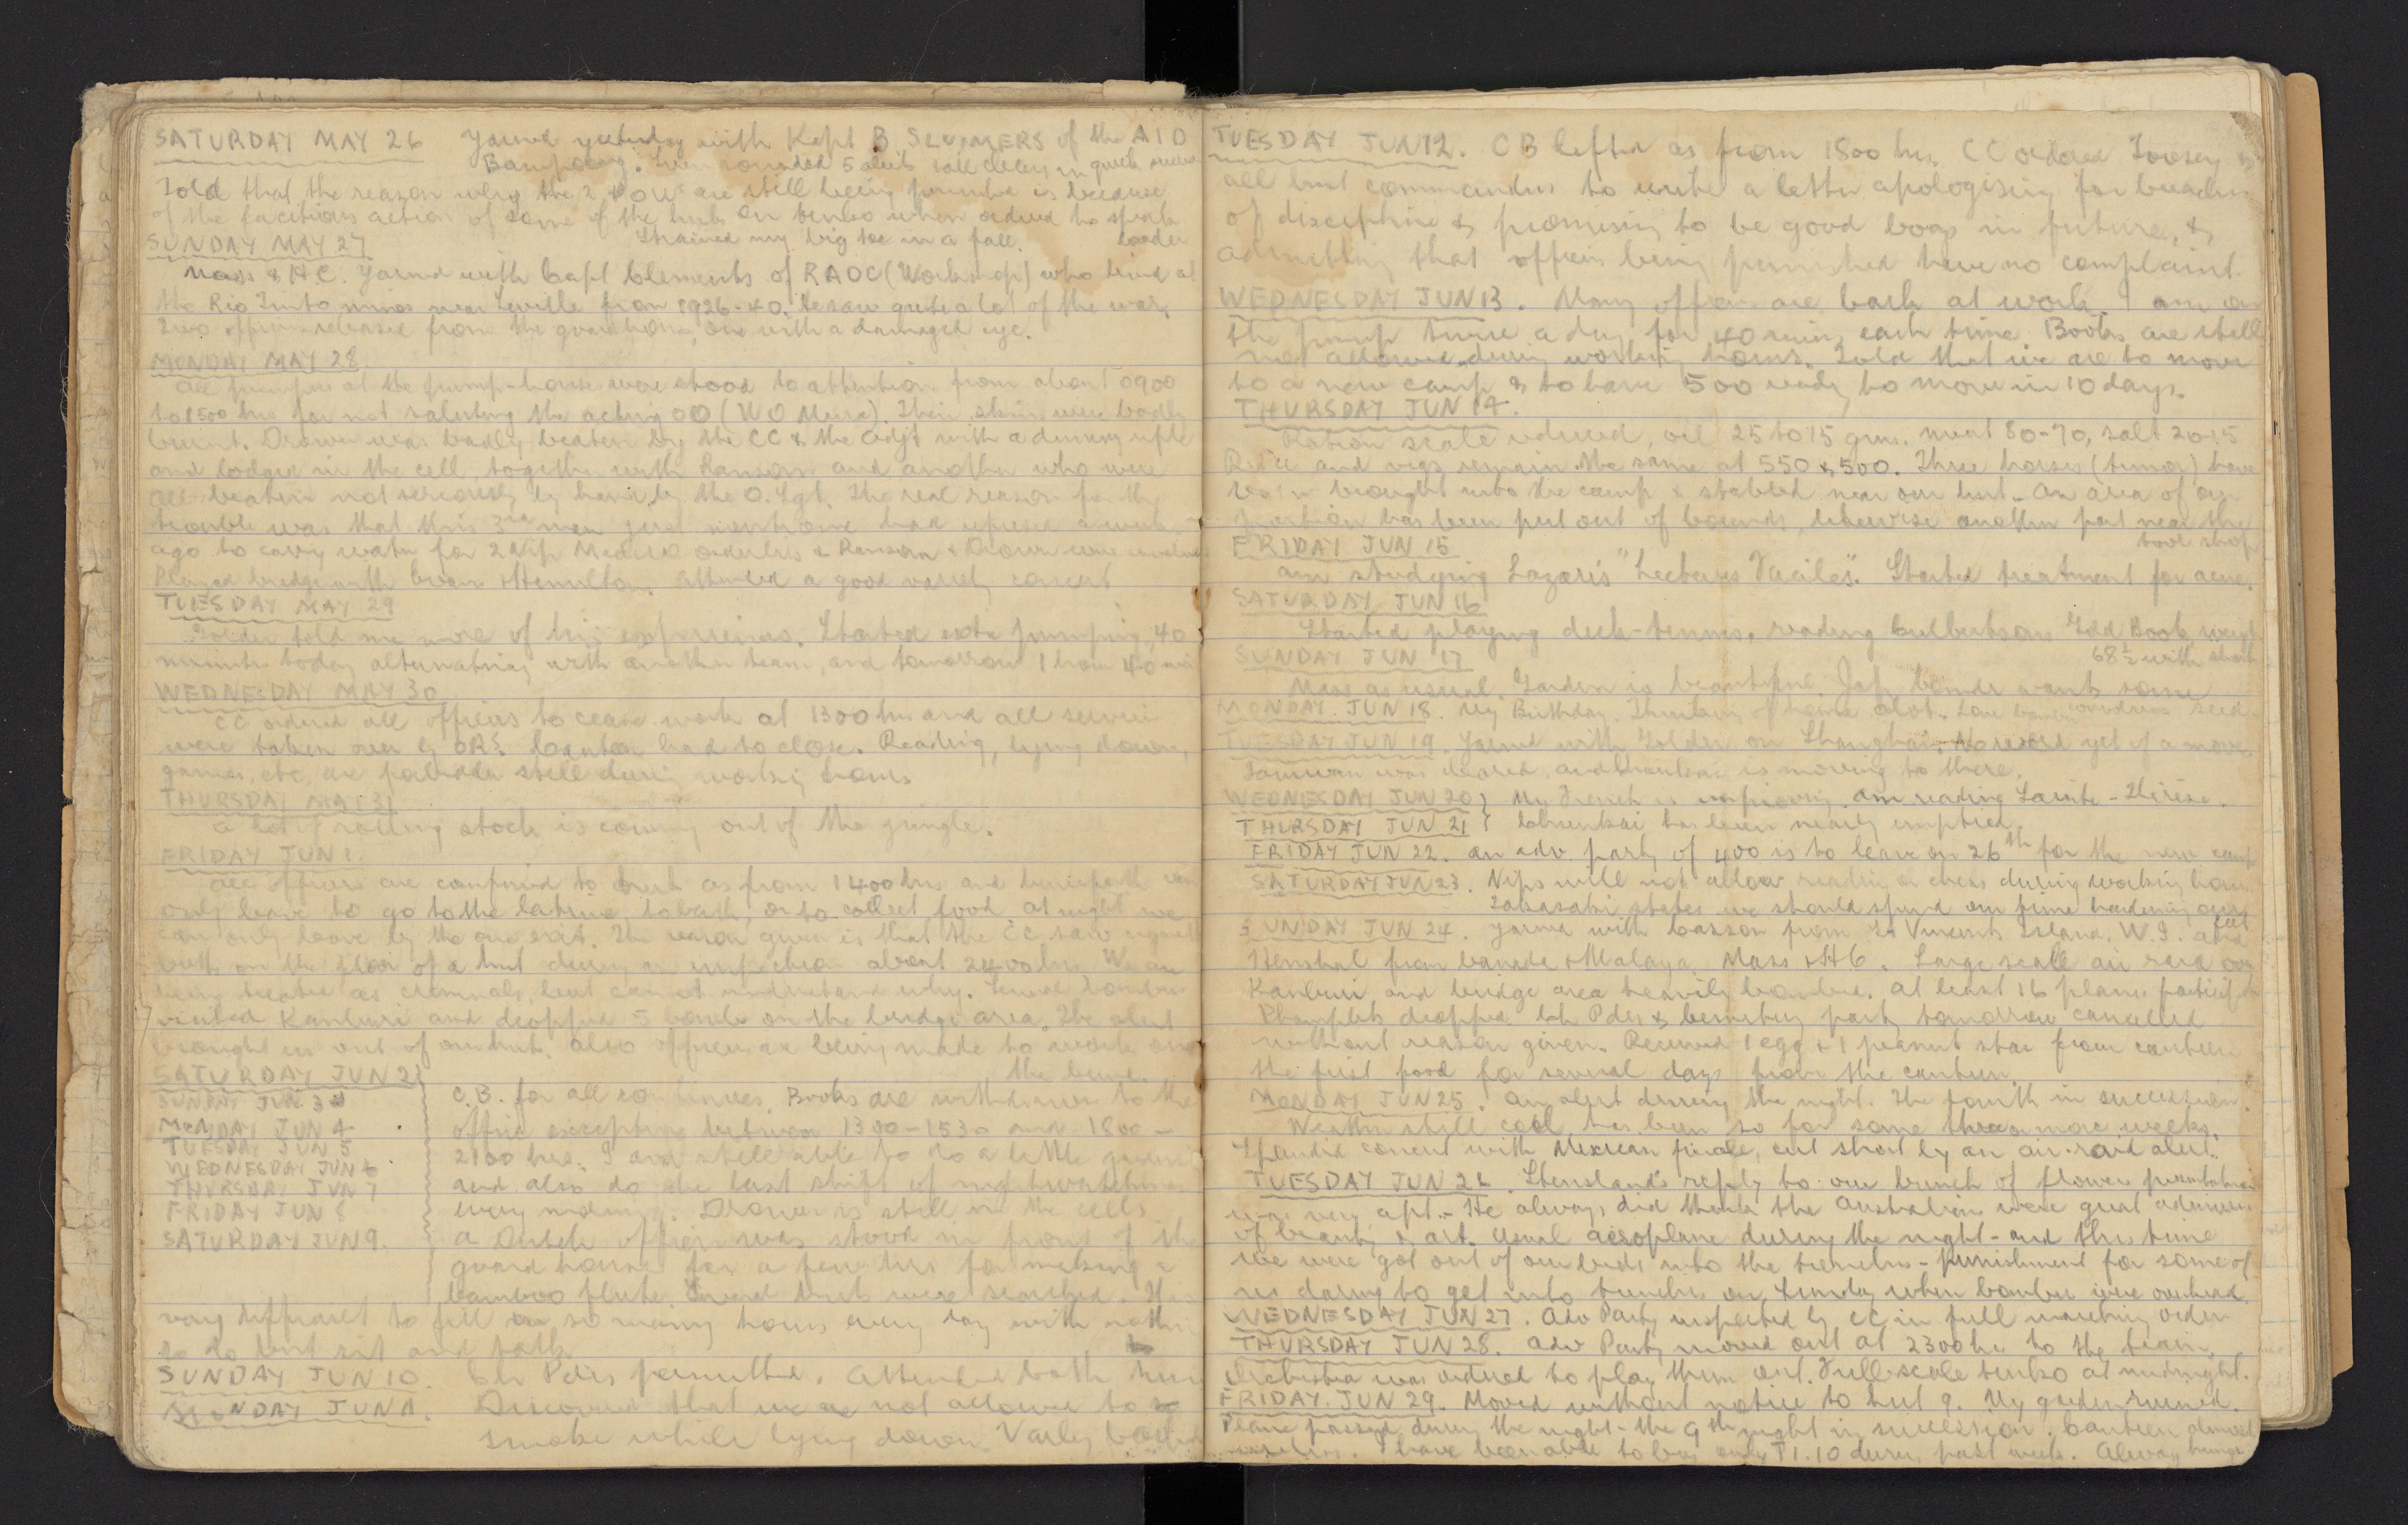 SATURDAY MAY 26 Yarned yesterday with Kapt B. SLUIMERS of the A I D
Bampong. Siren sounded 5 alerts & all clears in quick
Told that the reason why the 2 POWs are still being punished is because
of the facetious action of some of the hut on tenko when ordered to
SUNDAY MAY 27 Strained my big toe in a fall. louder
Mass & H.C. Yarned with Capt Clements of RAOC (Workshop) who lived at
the Rio Tinto mines near Seville from 1926-40. He saw quite a lot of the war.
Two officers released from the guardhouse, one with a damaged eye.
MONDAY MAY 28.
All pumpers at the pump-house were stood to attention from about 0900
to 1500 hrs for not saluting the acting OO (WO Meura). Their skins were badly
burnt. Drower was badly beaten by the CC & the adjt with a dummy rifle
and lodged in the cell, together with Ranson and another who were
all beaten not seriously by hand by the O. Sgt. The real reason for the
trouble was that this 3rd man just mentioned had refused a week
ago to carry water for 2 Nip Medical orderlies & Ranson & Drower were involved
Played bridge with Evans & Hamilton. Attended a good variety concert
TUESDAY MAY 29
Golder told me more of his experiences. Started extra pumping, 40
minutes today alternating with another team, and tomorrow 1 hour 40 min
WEDNESDAY MAY 30
CC ordered all officers to cease work at 1300 hrs and all services
were taken over by ORs. Canteen had to close. Reading, lying down,
games, etc, are forbidden still during working hours
THURSDAY MAY 31
A lot of rolling stock is coming out of the jungle.
FRIDAY JUN 1.
All officers are confined to hut as from 1400 hrs and henceforth can
only leave to go to the latrine, to bath, or to collect food. At night we
can only leave by the one exit. The reason given is that the CC saw cigarette
butts on the floor of a hut during an inspection about 2400 hrs. We are
being treated as criminals, but cannot understand why. Several bombers
visited Kanburi and dropped 5 bombs on the bridge area. The alert
brought us out of our huts. Also officers are being made to work on
SATURDAY JUN 2 the bund.
SUNDAY JUN 3 C.B. for all continues. Books are withdrawn to the
MONDAY JUN 4 office excepting between 1300-1530 and 1800-
TUESDAY JUN 5 2100 hrs. I am still able to do a little
WEDNESDAY JUN 6 and also do the last shift of nightwatchman
THURSDAY JUN 7 every morning. Drower is still in the cells
FRIDAY JUN 8 A Dutch officer was stood in front of the
SATURDAY JUN 9. guard house for a few hrs for making a
bamboo flute. Several huts were searched. It is
very difficult to fill in so many hours every day with nothing
to do but sit and talk
SUNDAY JUN 10. Ch Pdes permitted. Attended both
MONDAY JUN 11. Discovered that we are not allowed to
smoke while lying down. Varley
TUESDAY JUN 12. CB lifted as from 1800 hrs. CC ordered Toosey &
all hut commanders to write a letter apologising for breaches
of discipline & promising to be good boys in future, &
admitting that officers being punished have no complaint.
WEDNESDAY JUN 13. Many officers are back at work. I am on
the pump twice a day for 40 mins each time. Books are still
not allowed during working hours. Told that we are to move
to a new camp & to have 500 ready to move in 10 days.
THURSDAY JUN 14.
Ration scale reduced, oil 25 to 15 gms, meat 80-70, salt 20-15
Rice and vegs remain the same at 550 & 500. Three horses have
been brought into the camp & stabled near our hut. An area of our
portion has been put out of bounds, likewise another part near the
FRIDAY JUN 15 tool shop
Am studying Lazare's "Lectures Faciles". Started treatment for acne.
SATURDAY JUN 16
Started playing deck-tennis, reading Culbertsons Gold Book, weigh
SUNDAY JUN 17 68½ with
Mass as usual. Garden is beautiful. Jap wants some
MONDAY. JUN 18. My Birthday. Thinking of home a lot. seed
TUESDAY JUN 19. Yarned with Golder on Shanghai. No record yet of a move
Tamuan was cleared, and Chunkai is moving to there.
WEDNESDAY JUN 20 My French is improving. Am reading Sainte-Thérèse.
THURSDAY JUN 21 Chunkai has been nearly emptied.
FRIDAY JUN 22. An adv. party of 400 is to leave on 26th for the new camp
SATURDAY JUN 23. Nips will not allow reading or chess during working hours
Takasaki states we should spend our time hardening our
SUNDAY JUN 24. Yarned with Casson from St Vincents Island, W.I. and feet
Henshal from Canada & Malaya. Mass & H C. Large scale air raid over
Kanburi and bridge area heavily bombed. At least 16 planes
Pamphlets dropped. Ch Pdes & Cemetery party tomorrow cancelled
without reason given. Received 1 egg & 1 peanut star from canteen
the first food for several days from the canteen.
MONDAY JUN 25. An alert during the night. The fourth in succession.
Weather still cool, has been so for some three or more weeks.
Splendid concert with Mexican finale, cut short by an air-raid alert.
TUESDAY JUN 26. Stensland's reply to our bunch of flowers presentation
was very apt - He always did think the Australians were great admirers
of beauty & art. Usual aeroplane during the night - and this time
we were got out of our beds into the trenches - punishment for some of
us daring to get into trenches on Sunday when bombers were overhead.
WEDNESDAY JUN 27. Adv Party inspected by CC in full marching order
THURSDAY JUN 28. Adv Party moved out at 2300 hrs to the train.
Orchestra was ordered to play them out. Full-scale tenko at midnight.
FRIDAY. JUN 29. Moved without notice to hut 9. My garden ruined.
Plane passed during the night - the 9th night in succession. Canteen almost
useless. I have been able to buy only T1.10 during past week. Always hungry